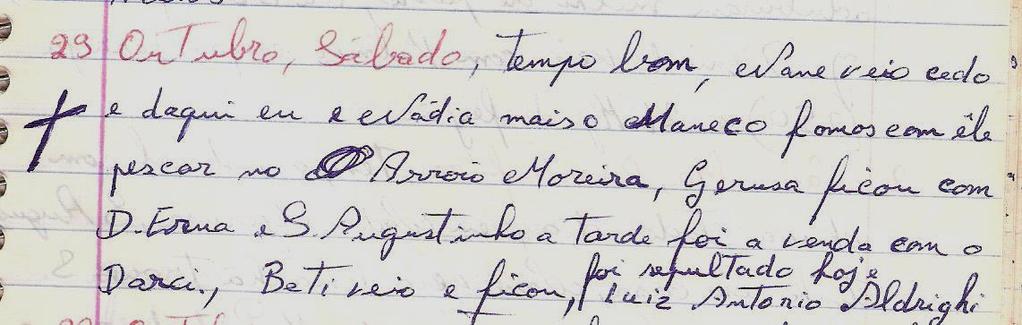 29 OuTubro, Sábado, Tempo bom, Nane veio cedo
e daqui eu e Nádia mais o Maneco fomos com êle
pescar no Arroio Moreira, Gerusa ficou com
D. Erna e S. Augustinho a Tarde foi a venda com o
foi sepultado hoje
Darci., Beti veio e ficou, Luiz Antonio Aldrighi